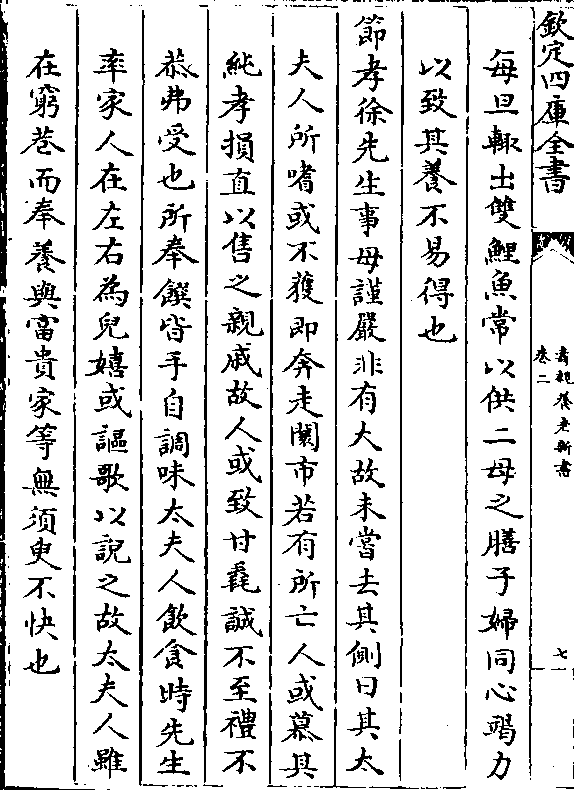 欽定四庫全書
壽親養老新書
卷二
七
每旦輙出雙鯉魚常以供二母之膳子婦同心竭力
以致其養不易得也
節孝徐先生事母謹嚴非有大故未嘗去其側曰其太
夫人所嗜或不獲即奔走闤市若有所亡人或慕其
純孝損直以售之親戚故人或致甘毳誠不至禮不
恭弗受也所奉饌皆手自調味太夫人飲食時先生
率家人在左右為兒嬉或謳歌以說之故太夫人雖
在窮巷而奉養與富貴家等無須臾不快也